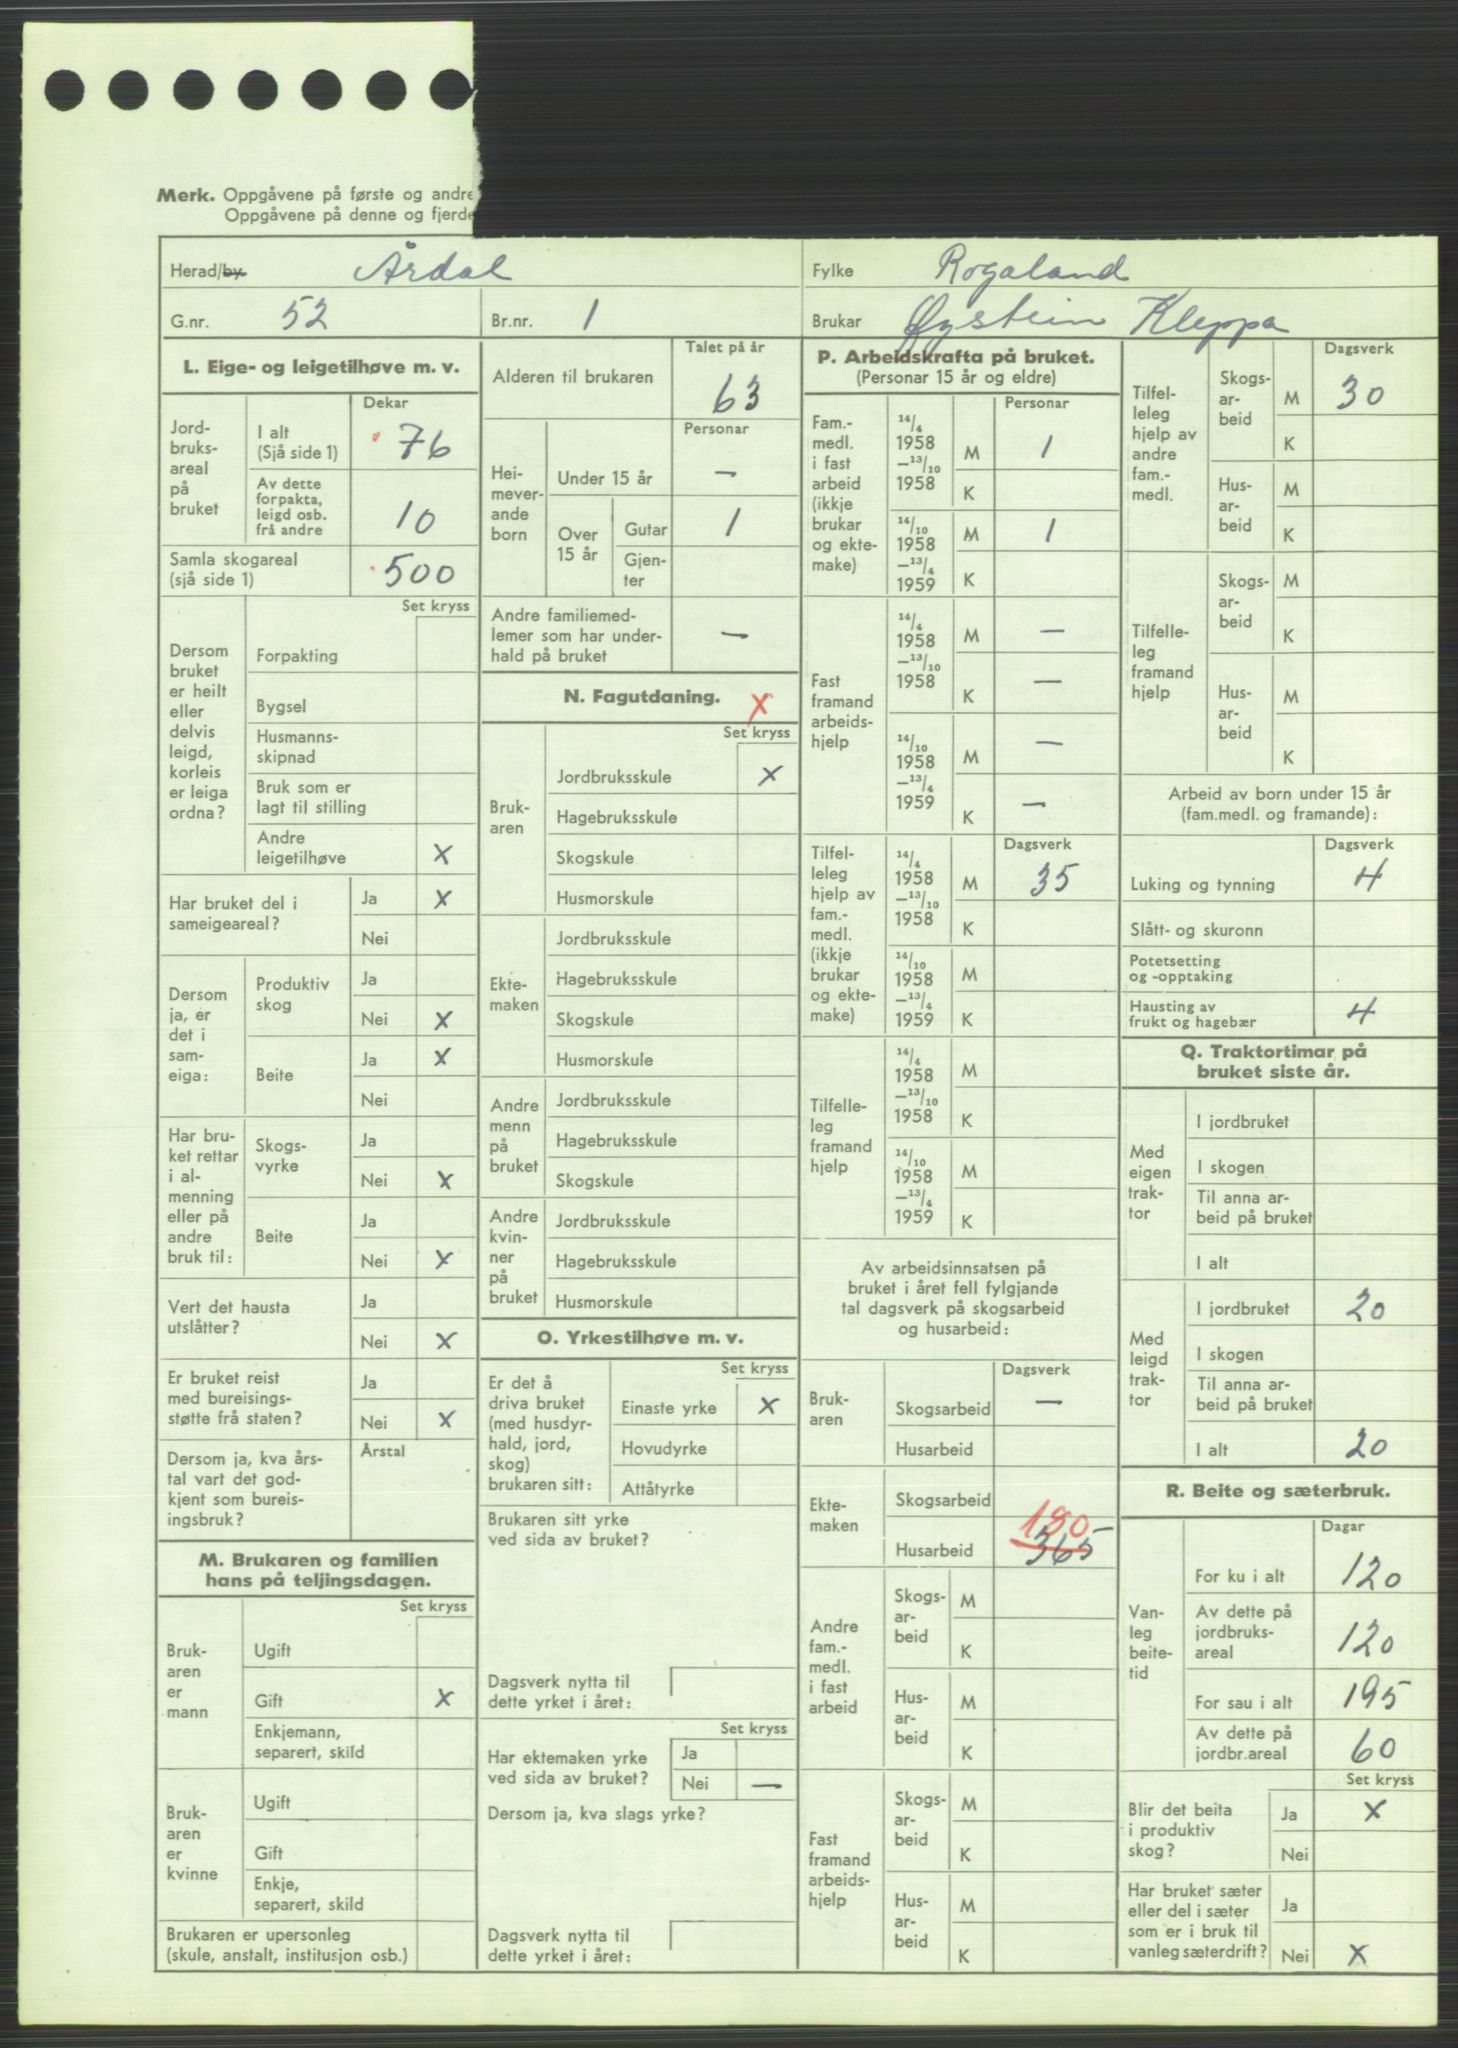 Merk. Oppgåvene på første og andre
Oppgåvene på denne og fjerde
Herad/by. Årdal
Fylke Rogaland
G.nr. 52
Br.nr. 1
Brukar Øystein Kleppa
L. Eige- og leigetilhøve m. v.
Dekar
Jord-
bruks-
areal
på
bruket
I alt
(Sjå side 1) 76
Av dette
forpakta,
leigd osb.
frå andre 10
Samla skogareal
(sjå side 1) 500
Set kryss
Dersom
bruket
er heilt
eller
delvis
leigd,
korleis
er leiga
ordna?
Forpakting
Bygsel
Husmanns-
skipnad
Bruk som er
lagt til stilling
Andre
leigetilhøve X
Har bruket del i
sameigeareal?
Ja X
Nei
Dersom
ja, er
det i
sam-
eiga:
Produktiv
skog
Ja
Nei X
Beite
Ja X
Nei
Har bru-
ket rettar
i al-
menning
eller på
andre
bruk til:
Skogs-
vyrke
Ja
Nei X
Beite
Ja
Nei X
Vert det hausta
utslåtter?
Ja
Nei X
Er bruket reist
med bureisings-
støtte frå staten?
Ja
Nei X
Dersom ja, kva års-
tal vart det god-
kjent som bureis-
ingsbruk?
Årstal
M. Brukaren og familien
hans på teljingsdagen.
Set kryss
Bruk-
aren
er
mann
Ugift
Gift X
Enkjemann,
separert, skild
Bruk-
aren
er
kvinne
Ugift
Gift
Enkje,
separert, skild
Brukaren er upersonleg
(skule, anstalt, institusjon osb.)
Talet på år
Alderen til brukaren 63
Personar
Hei-
mever-
ande
born
Under 15 år —
Over
15 år
Gutar 1
Gjen-
ter
Andre familiemed-
lemer som har under-
hald på bruket —
N. Fagutdaning. X
Set kryss
Bruk-
aren
Jordbruksskule X
Hagebruksskule
Skogskule
Husmorskule
Ekte-
maken
Jordbruksskule
Hagebruksskule
Skogskule
Husmorskule
Andre
menn
på
bruket
Jordbruksskule
Hagebruksskule
Skogskule
Andre
kvin-
ner
på
bruket
Jordbruksskule
Hagebruksskule
Husmorskule
O. Yrkestilhøve m. v.
Set kryss
Er det å
driva bruket
(med husdyr-
hald, jord,
skog)
brukaren sitt:
Einaste yrke X
Hovudyrke
Attåtyrke
Brukaren sitt yrke
ved sida av bruket?
Dagsverk nytta til
dette yrket i året:
Set kryss
Har ektemaken yrke
ved sida av bruket?
Ja
Nei —
Dersom ja, kva slags yrke?
Dagsverk nytta til
dette yrket i året:
P. Arbeidskrafta på bruket.
(Personar 15 år og eldre)
Personar
Fam.-
medl.
i fast
arbeid
(ikkje
brukar
og ekte-
make)
14/4
1958
—13/10
1958
M 1
K
14/10
1958
—13/4
1959
M 1
K
Fast
framand
arbeids-
hjelp
14/4
1958
—13/10
1958
M —
K —
14/10
1958
—13/4
1959
M —
K —
Dagsverk
Tilfel-
leleg
hjelp av
fam.-
medl.
(ikkje
brukar
og ekte-
make)
14/4
1958
—13/10
1958
M 35
K
14/10
1958
—13/4
1959
M
K
Tilfelle-
leg
framand
hjelp
14/4
1958
—13/10
1958
M
K
14/10
1958
—13/4
1959
M
K
Av arbeidsinnsatsen på
bruket i året fell fylgjande
tal dagsverk på skogsarbeid
og husarbeid:
Dagsverk
Bruk-
aren
Skogsarbeid —
Husarbeid
Ekte-
maken
Skogsarbeid
180
Husarbeid 365
Andre
fam.-
medl.
i fast
arbeid
Skogs-
ar-
beid
M
K
Hus-
ar-
beid
M
K
Fast
framand
arbeids-
hjelp
Skogs-
ar-
beid
M
K
Hus-
ar-
beid
M
K
Dagsverk
Tilfel-
leleg
hjelp av
andre
fam.-
medl.
Skogs-
ar-
beid
M 30
K
Hus-
ar-
beid
M
K
Tilfelle-
leg
framand
hjelp
Skogs-
ar-
beid
M
K
Hus-
ar-
beid
M
K
Arbeid av born under 15 år
(fam.medl. og framande):
Dagsverk
Luking og tynning 4
Slått- og skuronn
Potetsetting
og -opptaking
Hausting av
frukt og hagebær 4
Q. Traktortimar på
bruket siste år.
Med
eigen
trak-
tor
I jordbruket
I skogen
Til anna ar-
beid på bruket
I alt
Med
leigd
trak-
tor
I jordbruket 20
I skogen
Til anna ar-
beid på bruket
I alt 20
R. Beite og sæterbruk.
Dagar
Van-
leg
beite-
tid
For ku i alt 120
Av dette på
jordbruks-
areal 120
For sau i alt 195
Av dette på
jordbr.areal 60
Set kryss
Blir det beita
i produktiv
skog?
Ja X
Nei
Har bruket sæter
eller del i sæter
som er i bruk til
vanleg sæterdrift?
Ja
Nei X